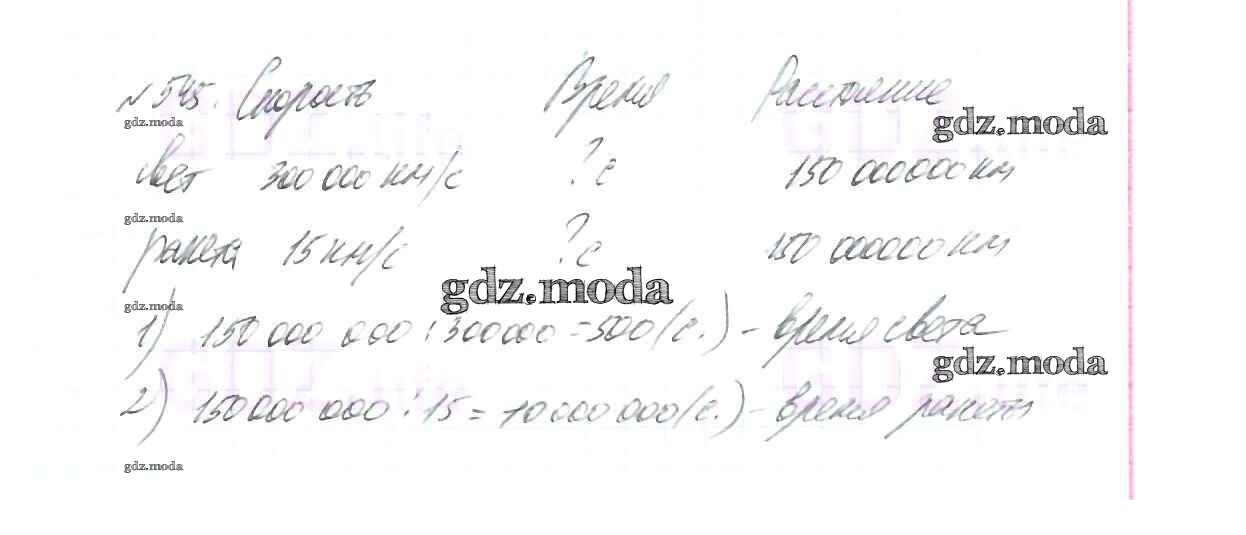 № 545. Скорость Время Расстояние
gdz.moda gdz.moda
свет 300 000 км/с ? с 150 000 000 км
gdz.moda
ракета 15 км/с ? с 150 000 000 км
gdz.moda
gdz.moda
1) 150 000 000 : 300000 = 500 (с.) - время света
gdz.moda
2) 150 000 000 : 15 = 10 000 000 (с.) - время ракеты
gdz.moda